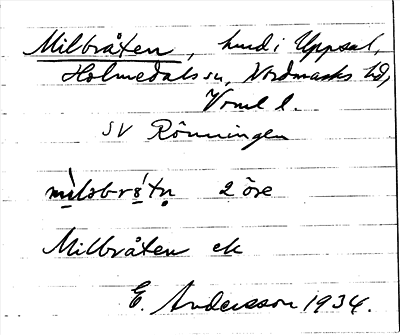 Milbråten, hemd i Uppsal,
Holmedals sn, Nordmarks hd,
Vrml l.
SV Rönningen
2 öre
Milbråten ek
E. Andersson 1934.